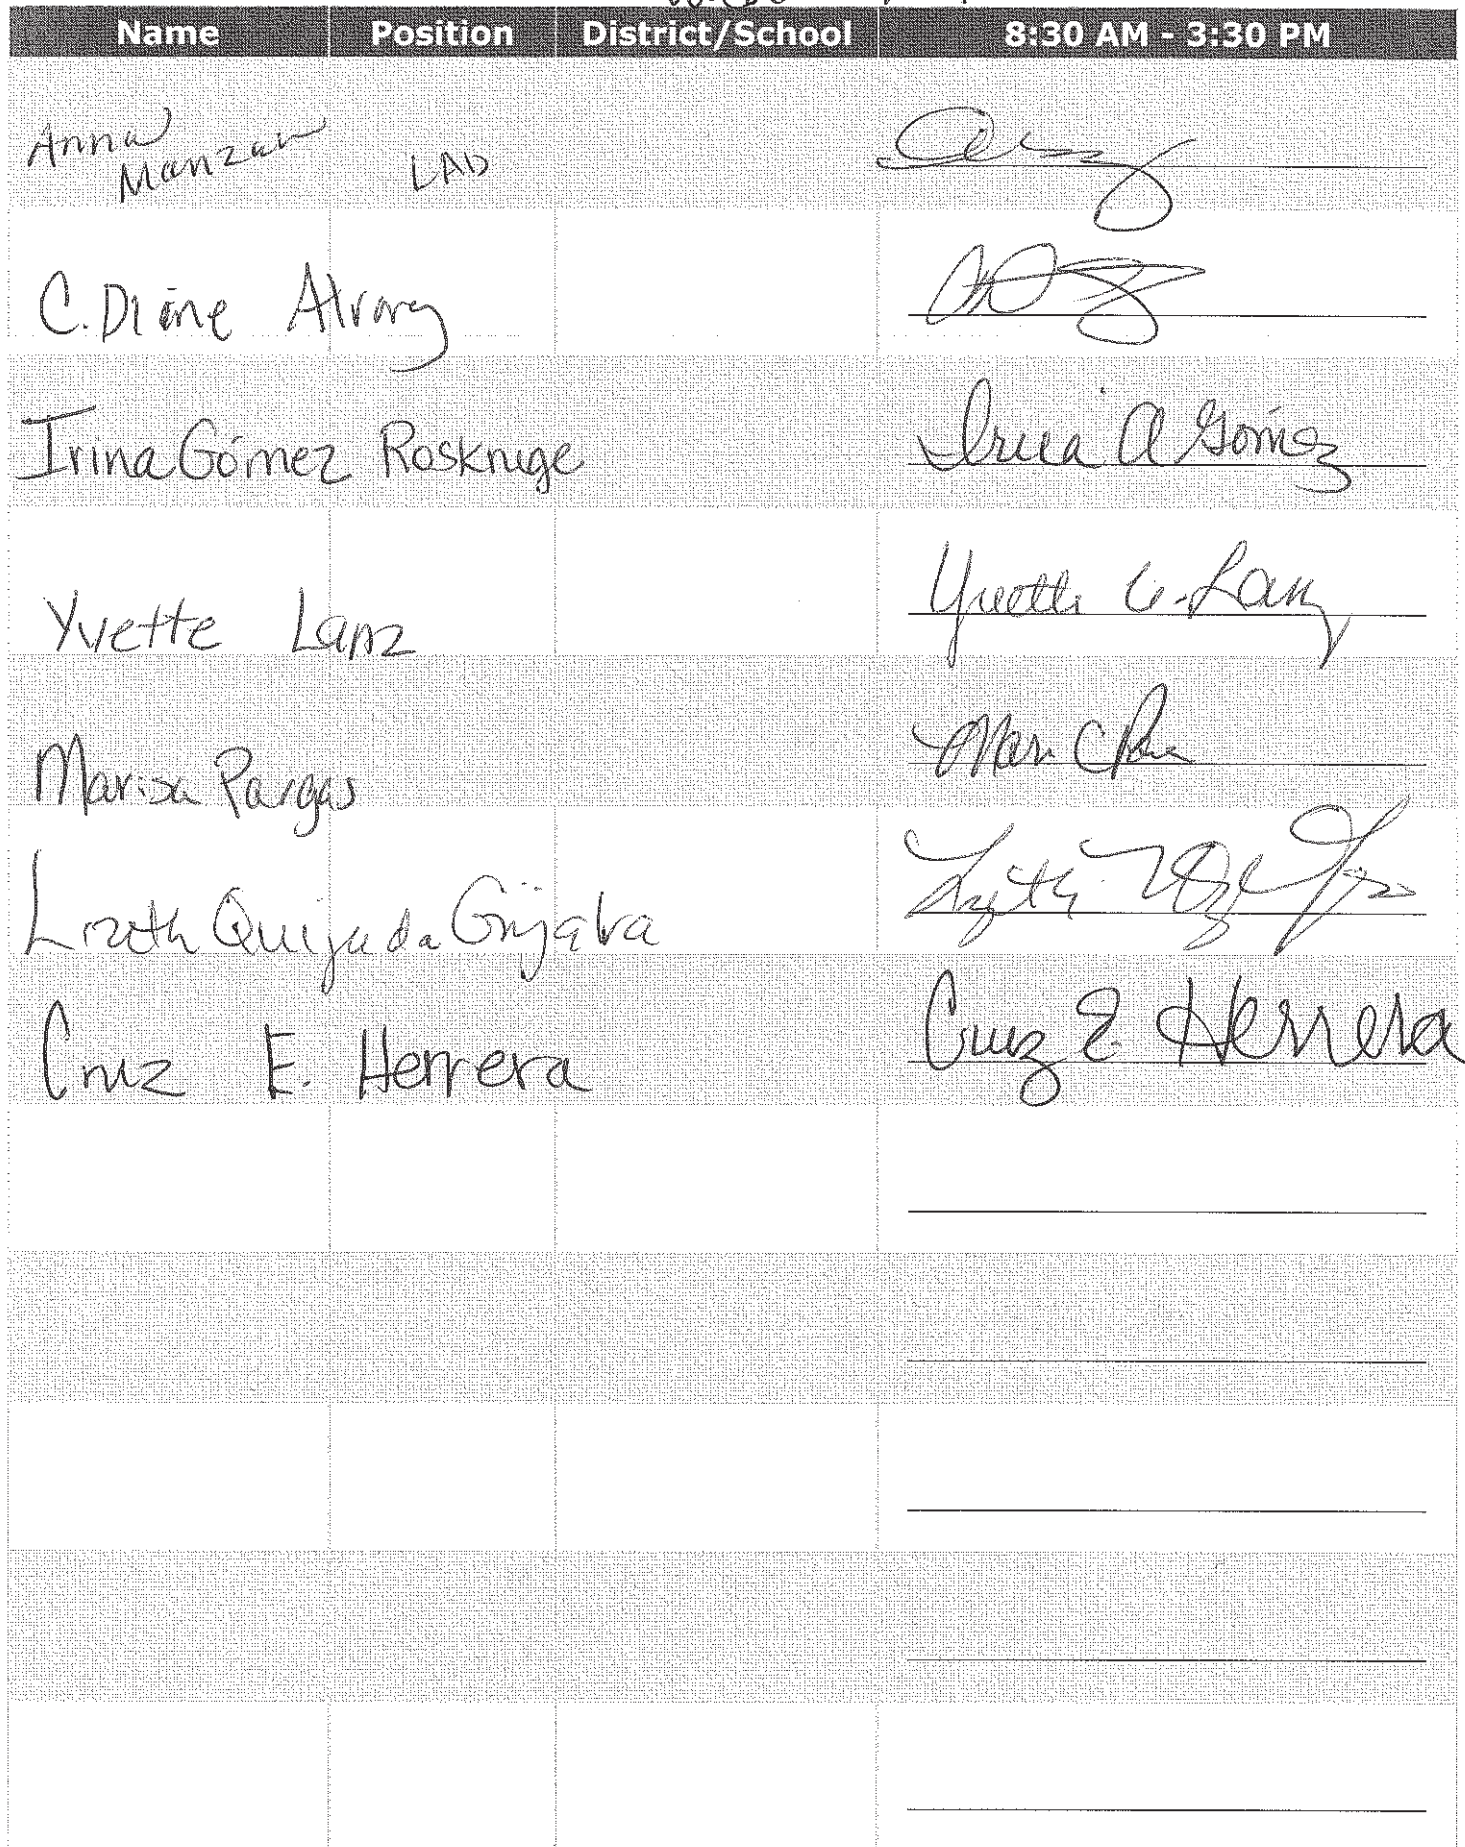 Name Position District/School 8:30 AM - 3:30 PM
Anna
Manzan LAD
C. Diane
Irina Gómez Roskruge Irina A Gómez
Yvette Lanz Yvette C. Lanz
Marisa Pargas
Lizeth Quijada Grijalva
Cruz E. Herrera Cruz E Herrera